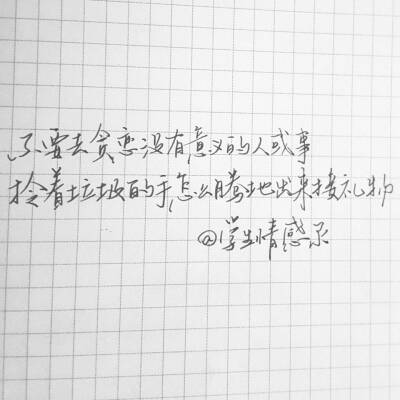 不要去贪恋没有意义的人或事
拎着垃圾的手,怎么腾地出来接礼物
@学生情感君